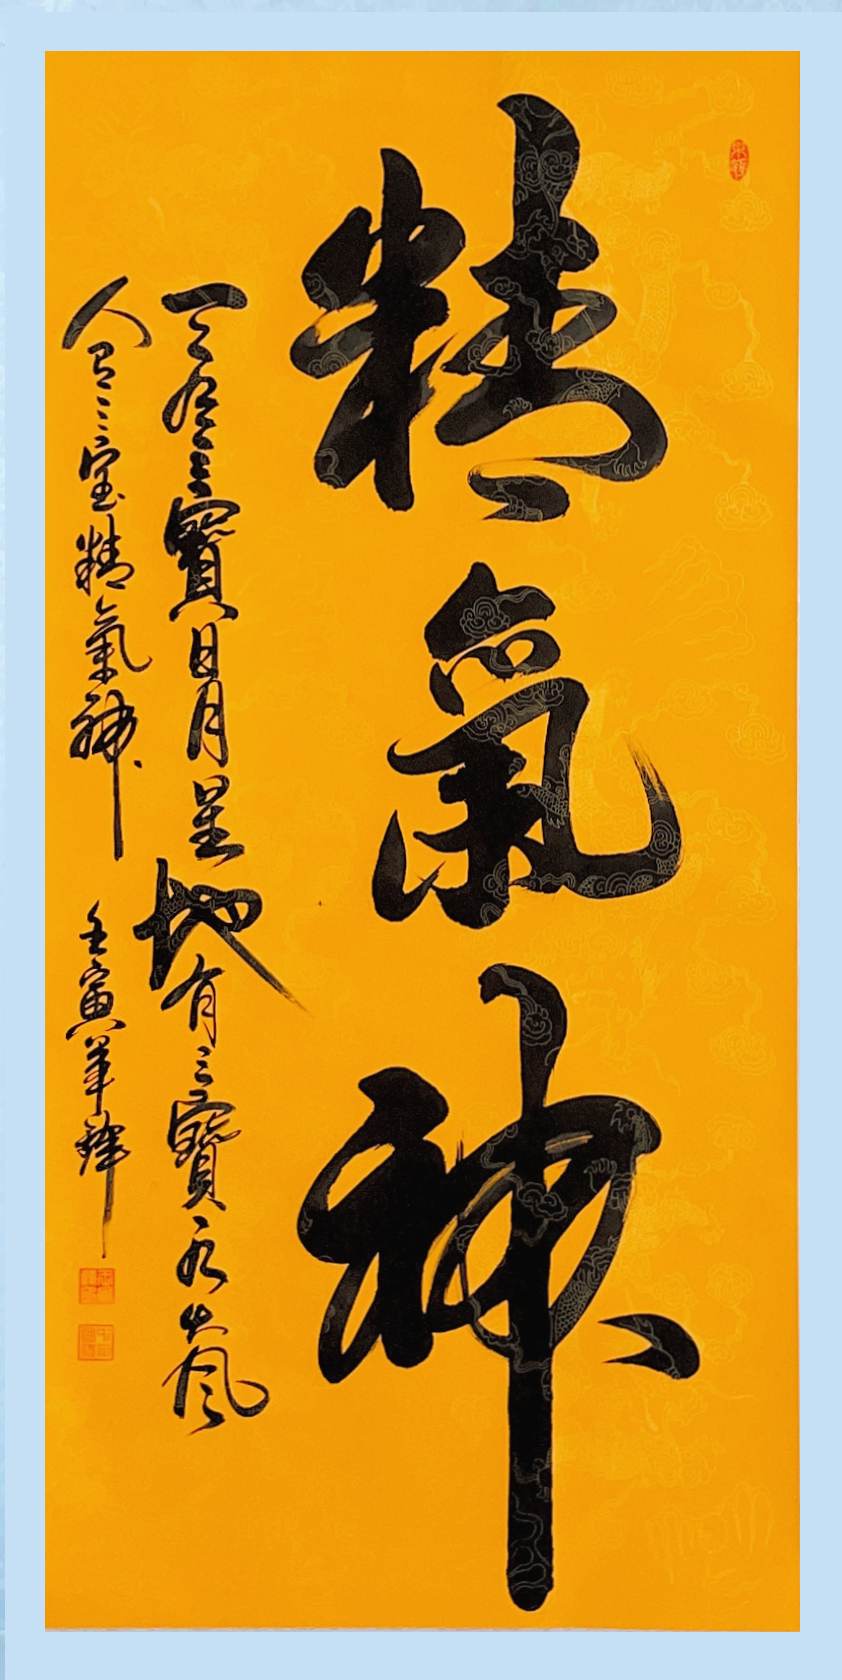 精氣神
天有三寶日月星地有三寶水火風
人有三宝精氣神 壬寅